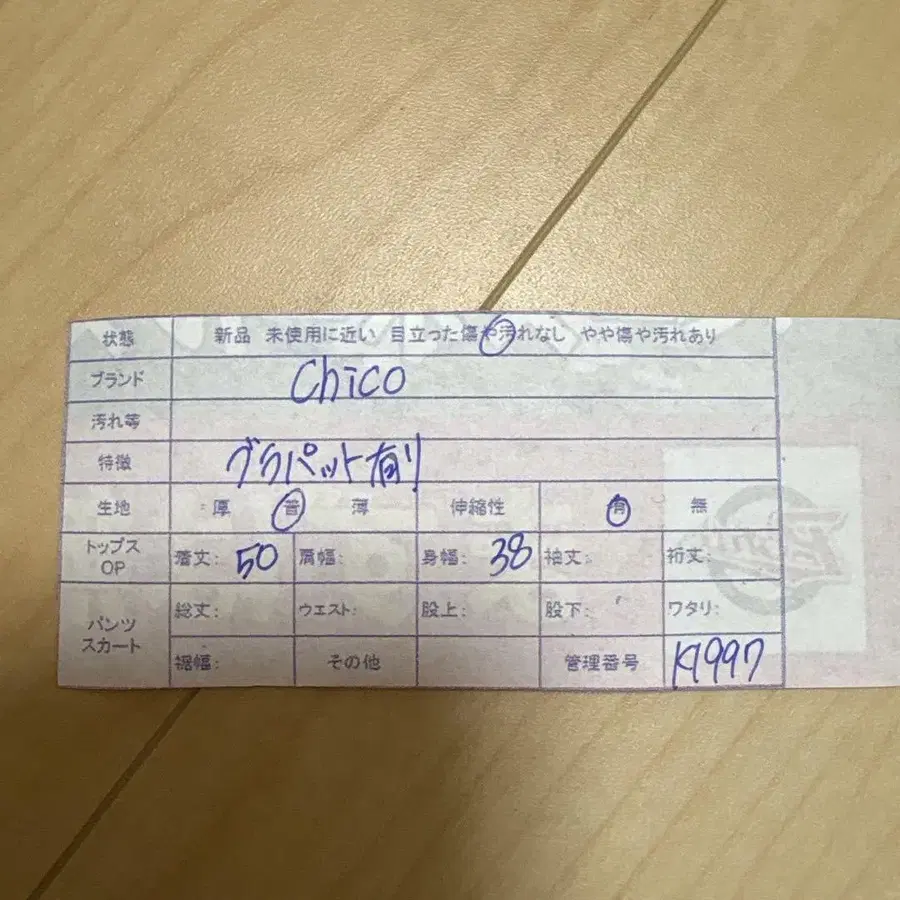 状態 新品 未使用に近い 目立った傷や汚れなし やや傷や汚れあり
ブランド Chico
汚れ等
特徴 ブラパット有り
生地 厚 普 薄 伸縮性 有 無
トップス OP 着丈: 50 肩幅: 身幅: 38 袖丈: 裄丈:
パンツ スカート 総丈: ウエスト: 股上: 股下: ワタリ:
裾幅: その他 管理番号 K1997